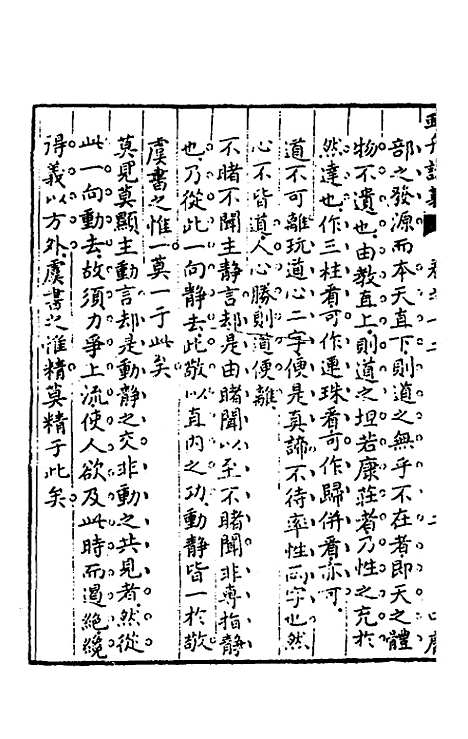 部之發源而本天直下則道之無乎不在者即天之體
物不遺也由教直上則道之坦若康莊者乃性之充於
然達也作三柱看可作連珠看可作歸併看亦可
道不可離玩道心二字便是真諦不待率性両字也然
心不皆道人心勝則道便離
不睹不聞主靜言却是由睹聞以至不睹聞非專指靜
也乃從此一向靜去此敬以直內之功動靜皆一於敬
虞書之惟一莫一于此矣
莫見莫顯主動言却是動靜之交非動之共見者然從
此一向動去故須力爭上流使人欲及此時而遏絕纔
得義以方外虞書之惟精莫精于此矣